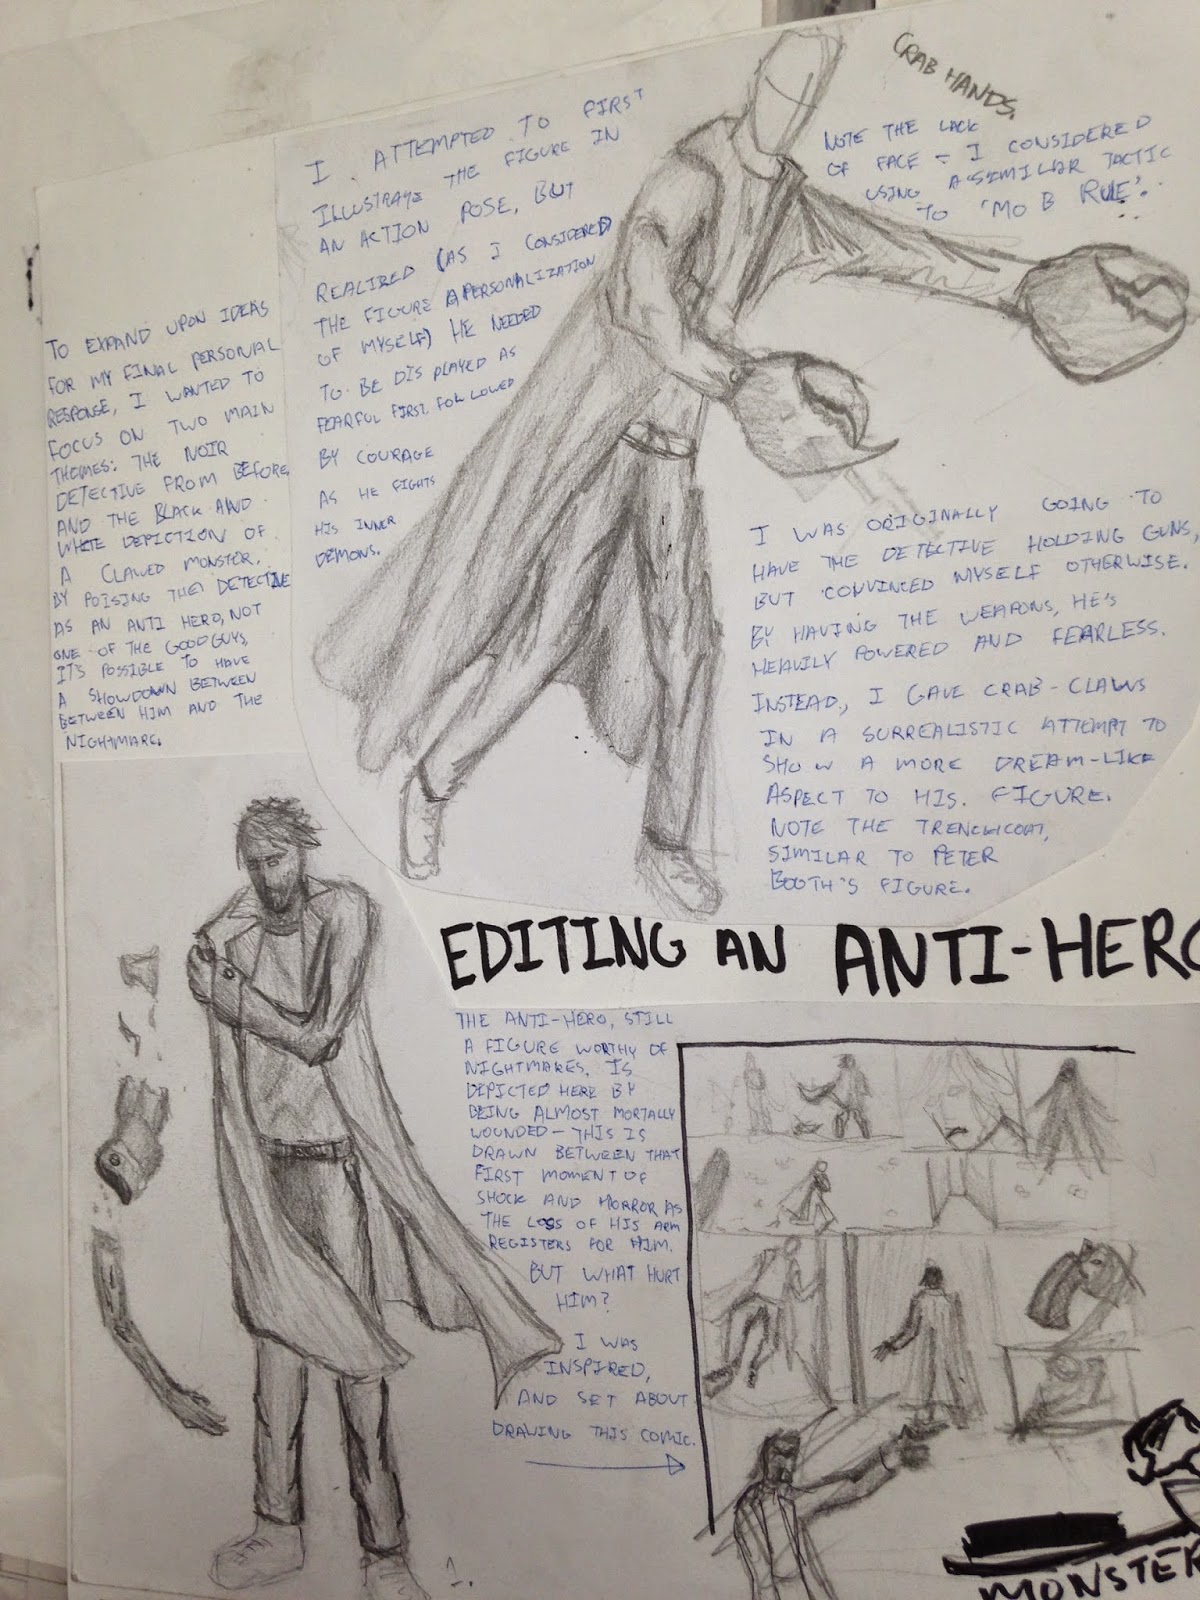 CRAB HANDS.
NOTE THE LACK
OF FACE - I CONSIDERED
USING A SIMILAR TACTIC
TO 'MOB RULE'.
I ATTEMPTED TO FIRST
ILLUSTRATE THE FIGURE IN
AN ACTION POSE, BUT
REALIRED (AS I CONSIDERED
THE FIGURE A PERSONALIZATION
OF MYSELF) HE NEEDED
TO BE DISPLAYED AS
FEARFUL FIRST, FOLLOWED
BY COURAGE
AS HE FIGHTS
HIS INNER
DEMONS.
TO EXPAND UPON IDEAS
FOR MY FINAL PERSONAL
RESPONSE, I WANTED TO
FOCUS ON TWO MAIN
THEMES: THE NOIR
DETECTIVE FROM BEFORE,
AND THE BLACK AND
WHITE DEPICTION OF
A CLAWED MONSTER.
BY POISING THE DETECTIVE
AS AN ANTI HERO, NOT
ONE OF THE GOOD GUYS,
IT'S POSSIBLE TO HAVE
A SHOWDOWN BETWEEN
BETWEEN HIM AND THE
NIGHTMARE.
I WAS ORIGINALLY GOING TO
HAVE THE DETECTIVE HOLDING GUNS,
BUT CONVINCED MYSELF OTHERWISE.
BY HAVING THE WEAPONS, HE'S
HEAVILY POWERED AND FEARLESS.
INSTEAD, I GAVE CRAB-CLAWS
IN A SURREALISTIC ATTEMPT TO
SHOW A MORE DREAM-LIKE
ASPECT TO HIS FIGURE.
NOTE THE TRENCHCOAT,
SIMILAR TO PETER
BOOTH'S FIGURE.
EDITING AN ANTI-HERO
THE ANTI-HERO, STILL
A FIGURE WORTHY OF
NIGHTMARES, IS
DEPICTED HERE BY
BEING ALMOST MORTALLY
WOUNDED - THIS IS
DRAWN BETWEEN THAT
FIRST MOMENT OF
SHOCK AND HORROR AS
THE LOSS OF HIS ARM
REGISTERS FOR HIM.
BUT WHAT HURT
HIM?
I WAS
INSPIRED,
AND SET ABOUT
DRAWING THIS COMIC.
MONSTER